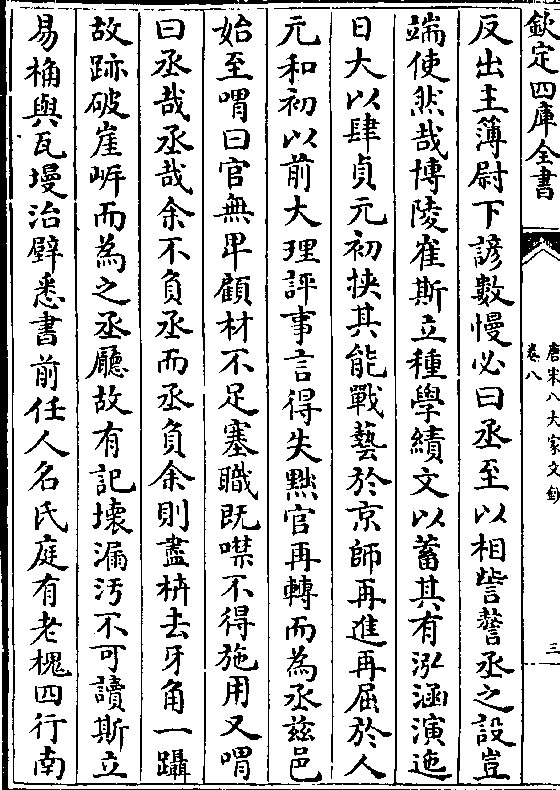 欽定四庫全書
唐宋八大家文鈔
卷八
三
反出主簿尉下諺數慢必曰丞至以相訾謷丞之設豈
端使然哉博陵崔斯立種學績文以蓄其有泓涵演迤
日大以肆貞元初挾其能戰藝於京師再進再屈於人
元和初以前大理評事言得失黜官再轉而為丞兹邑
始至喟曰官無卑顧材不足塞職既噤不得施用又喟
曰丞哉丞哉余不負丞而丞負余則盡枿去牙角一躡
故跡破崖岸而為之丞廳故有記壞漏汚不可讀斯立
易桷與瓦墁治壁悉書前任人名氏庭有老槐四行南